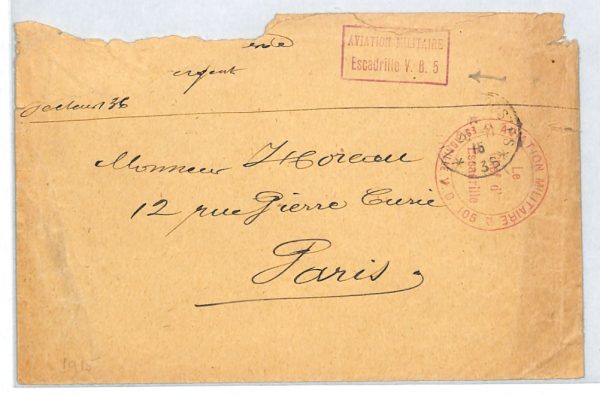 AVIATION MILITAIRE
Escadrille V. B. 5
urgent
Secteur 36
Monsieur Moreau
12 rue Pierre Curie
Paris
AVIATION MILITAIRE
Le
Escadrille
1915